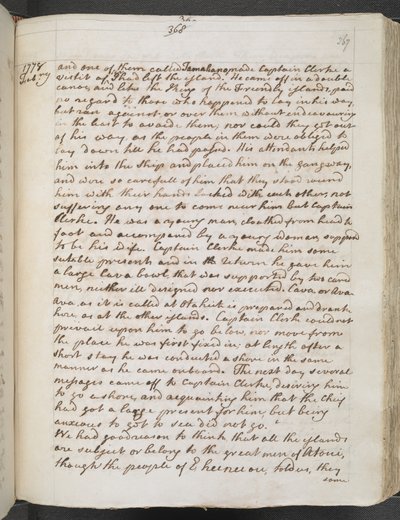 368
367
1778
Febry
and one of them called Tamahano, made Captain Clerke a
visit af I had left the island. He came off in a double
canoe, and like the King of the Freindly islands, paid
no regard to those who happened to lay in his way,
but ran against or over them without endeavouring
in the least to avoide them; nor could they get out
of his way, as the people in them were obliged to
lay down till he had passed. His attendants helped
him into the Ship and placed him on the gangway,
and were so carefull of him that they stood round
him with their hands locked with each other, not
suffering any one to come near him but Captain
Clerke. He was a young man, cloathed from head to
foot and accompaned by a young woman, supposed
to be his wife. Captain Clerke made him some
sutable presents and in the return he gave him
a large Cava bowl, that was supported by two carved
men, neither ill designed nor executed. Cava or Ava
Ava, as it is called at Otahiete, is prepared and drank
here as at the other islands. Captain Clerk could not
prevail upon him to go below, nor move from
the place he was first fixed in. at length after a
short stay he was conducted a shore in the same
manner as he came onboard. The next day several
messages came off to Captain Clerke, desiring him
to go ashore, and acquainting him that the Chief
had got a large present for him, but being
anxious to get to sea did not go.
We had good reason to think that all the islands
are subject or belong to the great men of Atoui,
though the people of Eheeneeou, told us, they
some